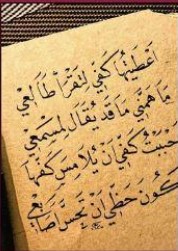 أعطيتها كفي لتقرأ طالعي
ما همني ما قد يقال لمسمعي
حبيت كفي أن يلامس كفها
يكون حظي أن تحس أصابعي